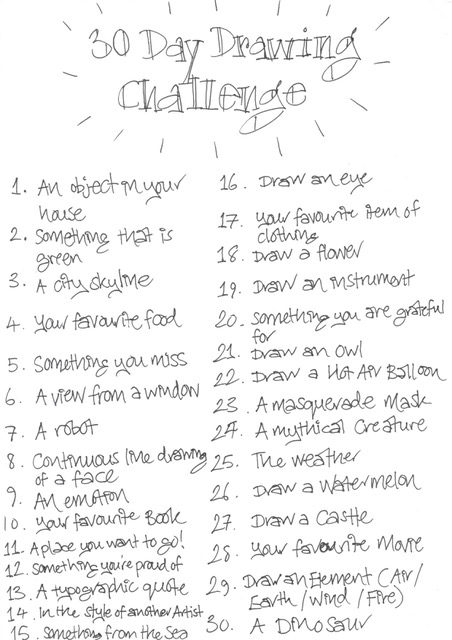 30 Day Drawing
Challenge
1. An object in your
house
2. Something that is
green
3. A city skyline
4. Your favourite food
5. Something you miss
6. A view from a window
7. A robot
8. Continuous line drawing
of a face
9. An emotion
10. Your favourite Book
11. A place you want to go!
12. Something you're proud of
13. A typographic quote
14. In the style of another Artist
15. Something from the Sea
16. Draw an eye
17. Your favourite item of
clothing
18. Draw a flower
19. Draw an instrument
20. Something you are grateful
for
21. Draw an Owl
22. Draw a Hot Air Balloon
23. A masquerade Mask
24. A mythical Creature
25. The weather
26. Draw a Watermelon
27. Draw a Castle
28. Your favourite Movie
29. Draw an Element (Air/
Earth/Wind/Fire)
30. A DinoSaur